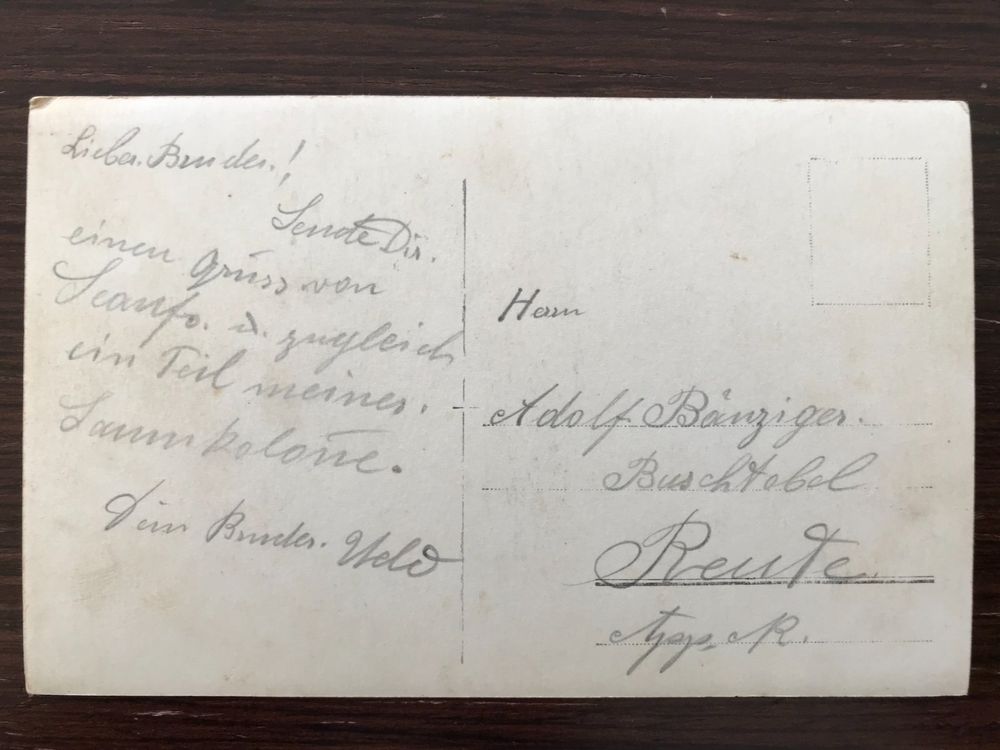 Lieber Bruder!
Sende Dir.
einen Gruss von
Scanfs. u. zugleich
ein Teil meiner.
Saumkolonne.
Dein Bruder. Ueli
Herrn
Adolf Bänziger.
Buschtobel
Reute
App. A. R.